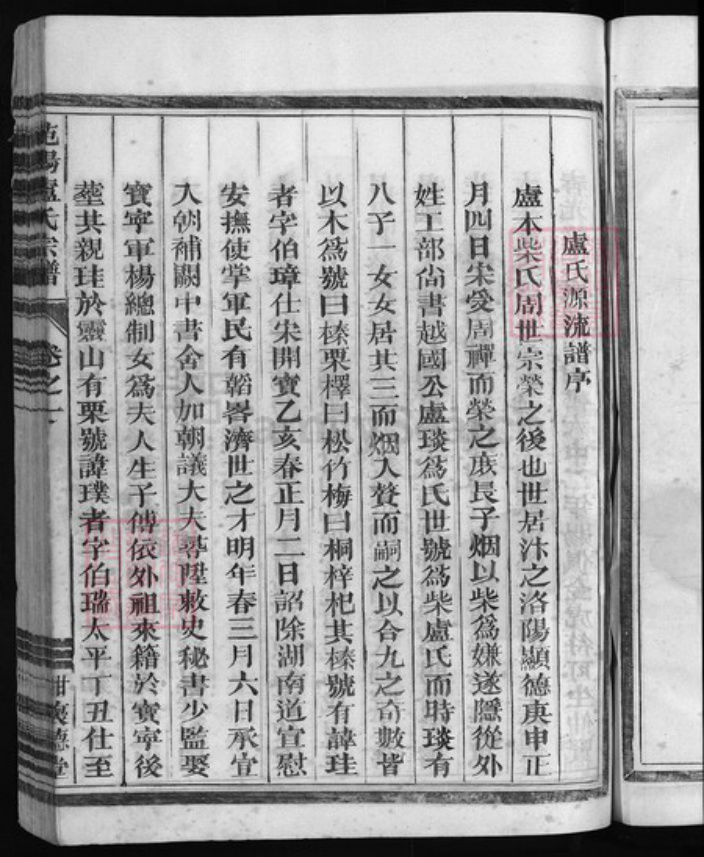 盧氏源流譜序
盧本柴氏周世宗榮之後也世居汴之洛陽顯德庚申正
月四日宋受周禪而榮之庶長子烟以柴爲嫌遂隱從外
姓工部尙書越國公盧琰爲氏世號爲柴盧氏而時琰有
八子一女女居其三而烟入贅而嗣之以合九之奇數皆
以木爲號曰榛栗檡曰松竹梅曰桐梓杞其榛號有諱珪
者字伯璋仕宋開寶乙亥春正月二日詔除湖南道宣慰
安撫使掌軍民有韜畧濟世之才明年春三月六日承宣
入朝補闕中書舍人加朝議大夫尋陞敕史秘書少監娶
寶寧軍楊總制女爲夫人生子傅依外祖來籍於寶寧後
塟其親珪於靈山有栗號諱璞者字伯瑞太平丁丑仕至
范陽盧氏宗譜
卷之一
德堂